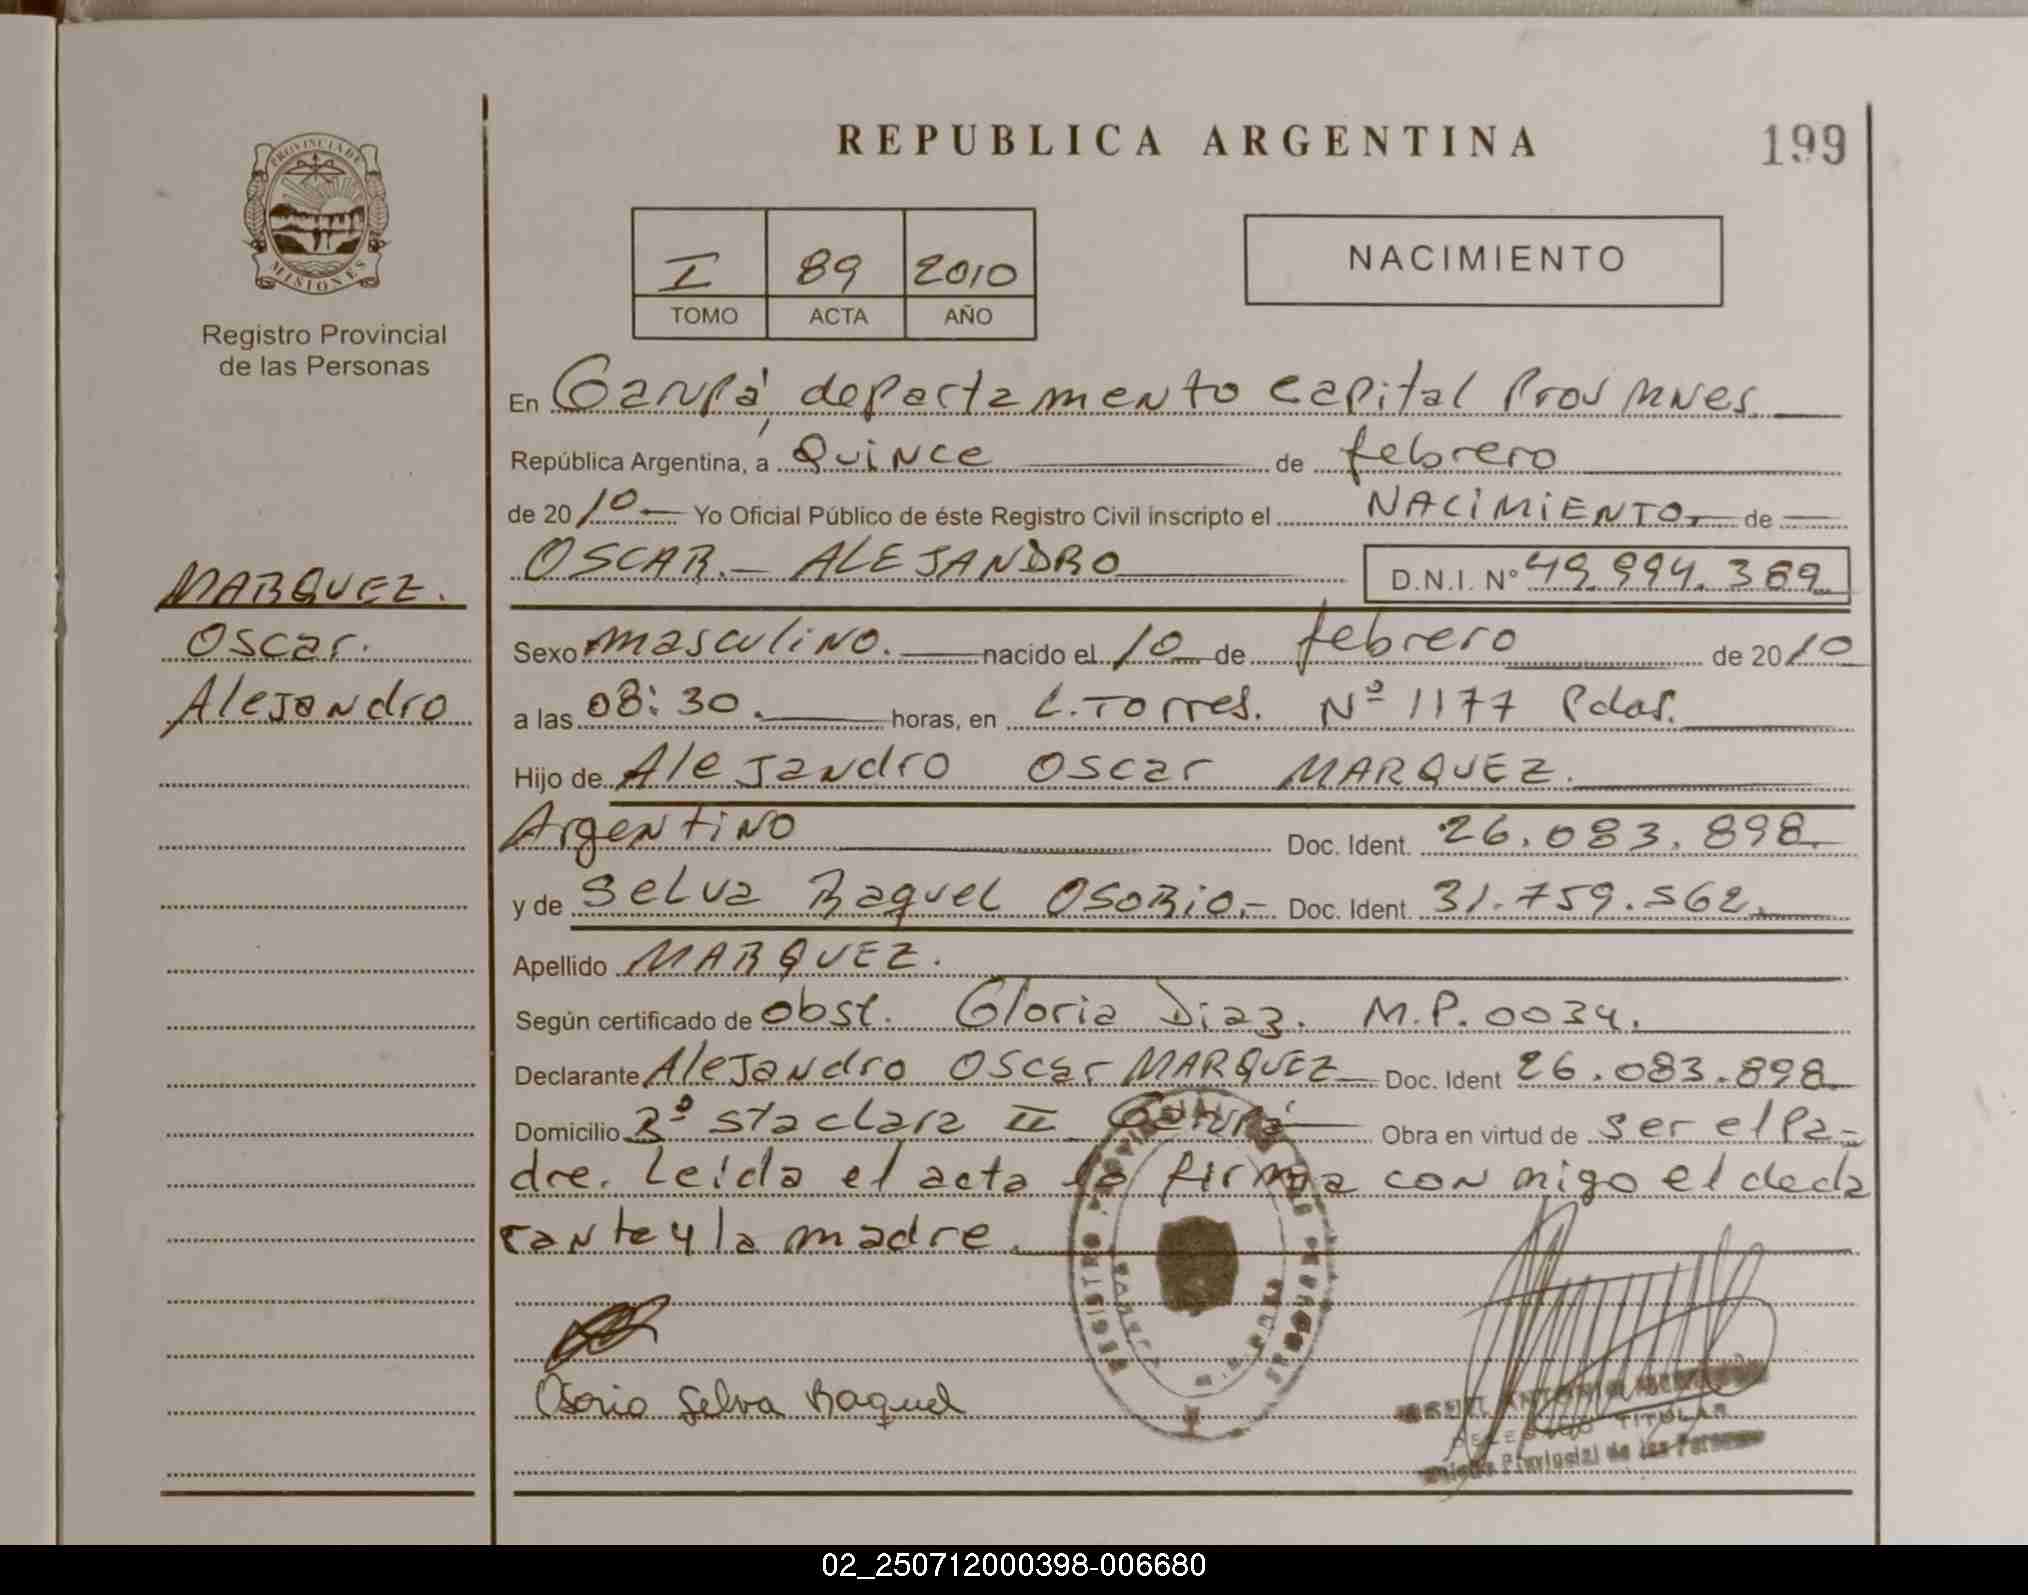 REPUBLICA ARGENTINA
199
PROVINCIA DE
MISIONES
Registro Provincial
de las Personas
I 89 2010
TOMO ACTA AÑO
NACIMIENTO
En Garupá, departamento Capital Prov Mnes.
República Argentina, a Quince de febrero
de 2010 Yo Oficial Público de éste Registro Civil inscripto el NACIMIENTO. de
OSCAR.- ALEJANDRO D.N.I. Nº 49.994.389
MARQUEZ.
Oscar.
Alejandro
Sexo masculino. nacido el 10 de febrero de 2010
a las 08:30. horas, en L. Torres. Nº 1177 Pdas.
Hijo de Alejandro Oscar MARQUEZ.
Argentino Doc. Ident. 26.083.898.
y de Selva Raquel OSORIO.- Doc. Ident. 31.759.562.
Apellido MARQUEZ.
Según certificado de obst. Gloria Diaz. M.P. 0034.
Declarante Alejandro Oscar MARQUEZ Doc. Ident 26.083.898
Domicilio Bº Sta clara II Garupá Obra en virtud de ser el Pa-
dre. Leida el acta la firma con migo el decla
rante y la madre.
Osorio Selva Raquel
ANTONIO
TITULAR
Provincial de las Personas
02_250712000398-006680